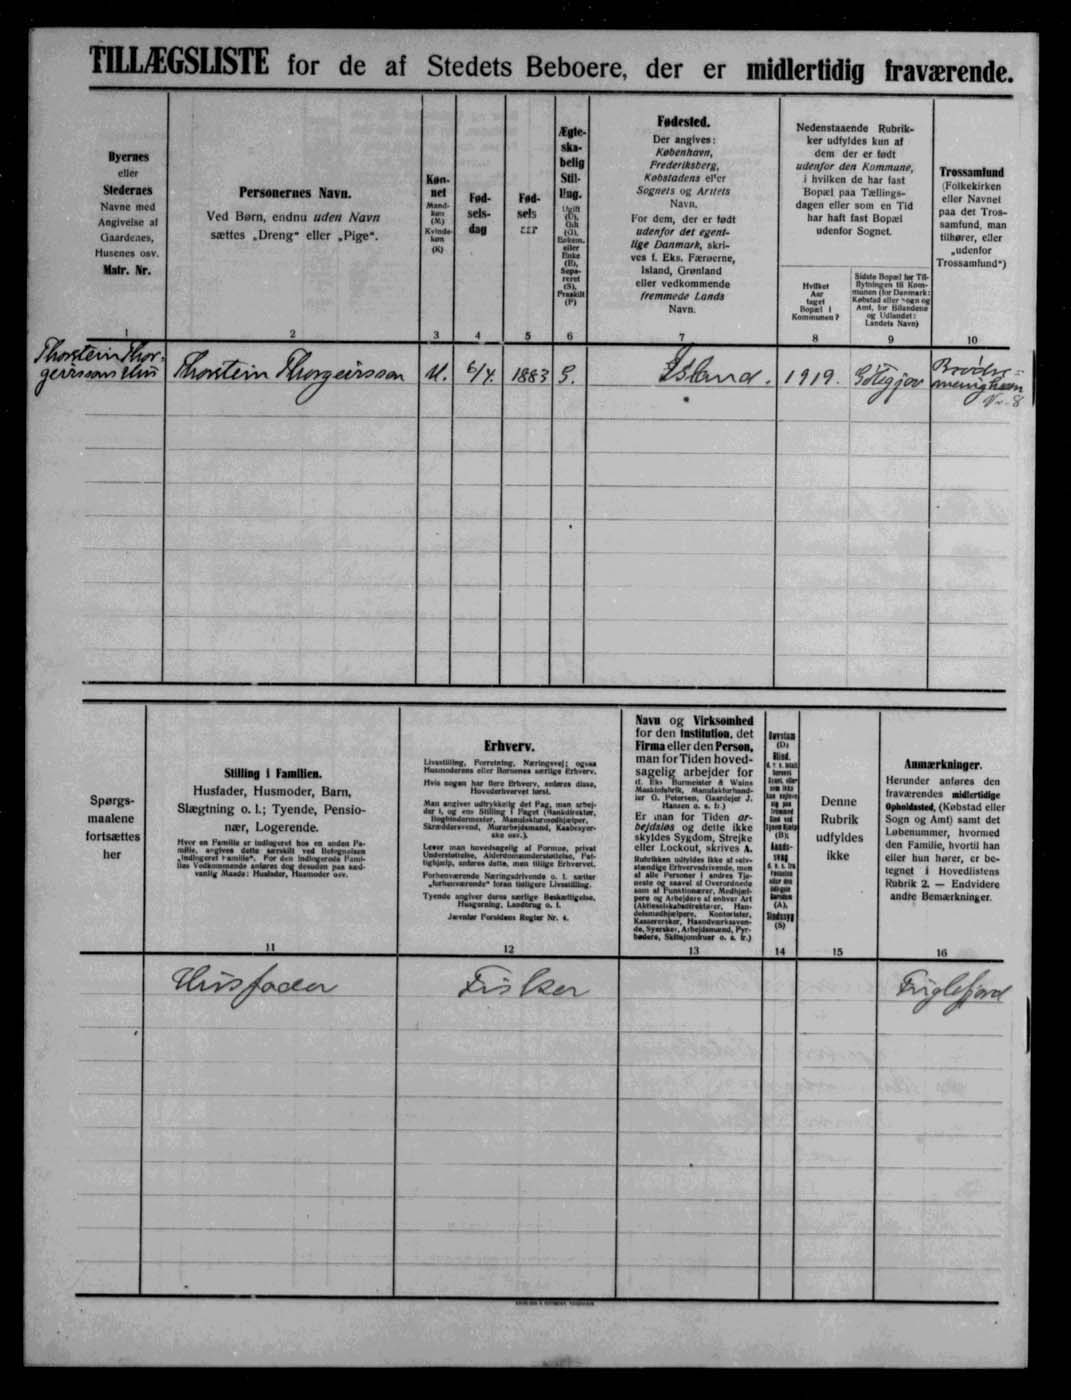 TILLÆGSLISTE for de af Stedets Beboere, der er midlertidig fraværende.
Byernes
eller
Stedernes
Navne med
Angivelse af
Gaardenes,
Husenes osv.
Matr. Nr.
1
Personernes Navn.
Ved Børn, endnu uden Navn
sættes „Dreng“ eller „Pige“.
2
Køn-
net
Mand-
køn
(M)
Kvinde-
køn
(K)
3
Fød-
sels-
dag
4
Fød-
sels
5
Ægte-
ska-
belig
Stil-
ling.
Ugift
(U),
Gift
(G),
Enkem.
eller
Enke
(E),
Sepa-
reret
(S),
Fraskilt
(F)
6
Fødested.
Der angives:
København,
Frederiksberg,
Købstadens eller
Sognets og Amtets
Navn.
For dem, der er født
udenfor det egent-
lige Danmark, skri-
ves f. Eks. Færøerne,
Island, Grønland
eller vedkommende
fremmede Lands
Navn.
7
Nedenstaaende Rubrik-
ker udfyldes kun af
dem der er født
udenfor den Kommune,
i hvilken de har fast
Bopæl paa Tællings-
dagen eller som en Tid
har haft fast Bopæl
udenfor Sognet.
Hvilket
Aar
taget
Bopæl i
Kommunen?
8
Sidste Bopæl før Til-
flytningen til Kom-
munen (for Danmark:
Købstad eller Sogn og
Amt, for Bilandene
og Udlandet:
Landets Navn)
9
Trossamfund
(Folkekirken
eller Navnet
paa det Tros-
samfund, man
tilhører, eller
„udenfor
Trossamfund“)
10
Thorstein Thor-
geirssons Hus
Thorstein Thorgeirsson
M.
6/4.
1883
G.
Island.
1919.
Brødre-
menigheden
Spørgs-
maalene
fortsættes
her
Stilling i Familien.
Husfader, Husmoder, Barn,
Slægtning o. l.; Tyende, Pensio-
nær, Logerende.
Hvor en Familie er indlogeret hos en anden Fa-
milie, angives dette særskilt ved Betegnelsen
„indlogeret Familie“. For den indlogerede Fami-
lies Vedkommende anføres dog desuden paa sæd-
vanlig Maade: Husfader, Husmoder osv.
11
Erhverv.
Livsstilling, Forretning, Næringsvej; ogsaa
Husmoderens eller Børnenes særlige Erhverv.
Hvis nogen har flere Erhverv, anføres disse,
Hovederhvervet først.
Man angiver udtrykkelig det Fag, man arbej-
der i, og ens Stilling i Faget (Bankdirektør,
Bogbindermester, Manufakturmedhjælper,
Skræddersvend, Murarbejdsmand, Kaabesyer-
ske osv.).
Lever man hovedsagelig af Formue, privat
Understøttelse, Alderdomsunderstøttelse, Fat-
tighjælp, anføres dette, men tillige Erhvervet.
Forhenværende Næringsdrivende o. l. sætter
„forhenværende“ foran tidligere Livsstilling.
Tyende angiver deres særlige Beskæftigelse,
Husgerning, Landbrug o. l.
Jævnfør Forsidens Regler Nr. 4.
12
Navn og Virksomhed
for den Institution, det
Firma eller den Person,
man for Tiden hoved-
sagelig arbejder for
(f. Eks Burmeister & Wains
Maskinfabrik, Manufakturhand-
ler O. Petersen, Gaardejer J.
Hansen o. s. fr.)
Er man for Tiden ar-
bejdsløs og dette ikke
skyldes Sygdom, Strejke
eller Lockout, skrives A.
Rubrikken udfyldes ikke af selv-
stændige Erhvervsdrivende, men
af alle Personer i andres Tje-
neste og saavel af Overordnede
som af Funktionærer, Medhjæl-
pere og Arbejdere af enhver Art
(Aktieselskabsdirektører, Han-
delsmedhjælpere, Kontorister,
Kasserersker, Haandværkssven-
de, Syersker, Arbejdsmænd, Fyr-
bødere, Skibsjomfruer o. s. fr.)
13
Døvstum
(D)
Blind,
(B),
Aands-
svag
(A),
Sindssyg
(S)
14
Denne
Rubrik
udfyldes
ikke
15
Anmærkninger.
Herunder anføres den
fraværendes midlertidige
Opholdssted, (Købstad eller
Sogn og Amt) samt det
Løbenummer, hvormed
den Familie, hvortil han
eller hun hører, er be-
tegnet i Hovedlistens
Rubrik 2. — Endvidere
andre Bemærkninger.
16
Husfader
Fisker
Fuglefjord